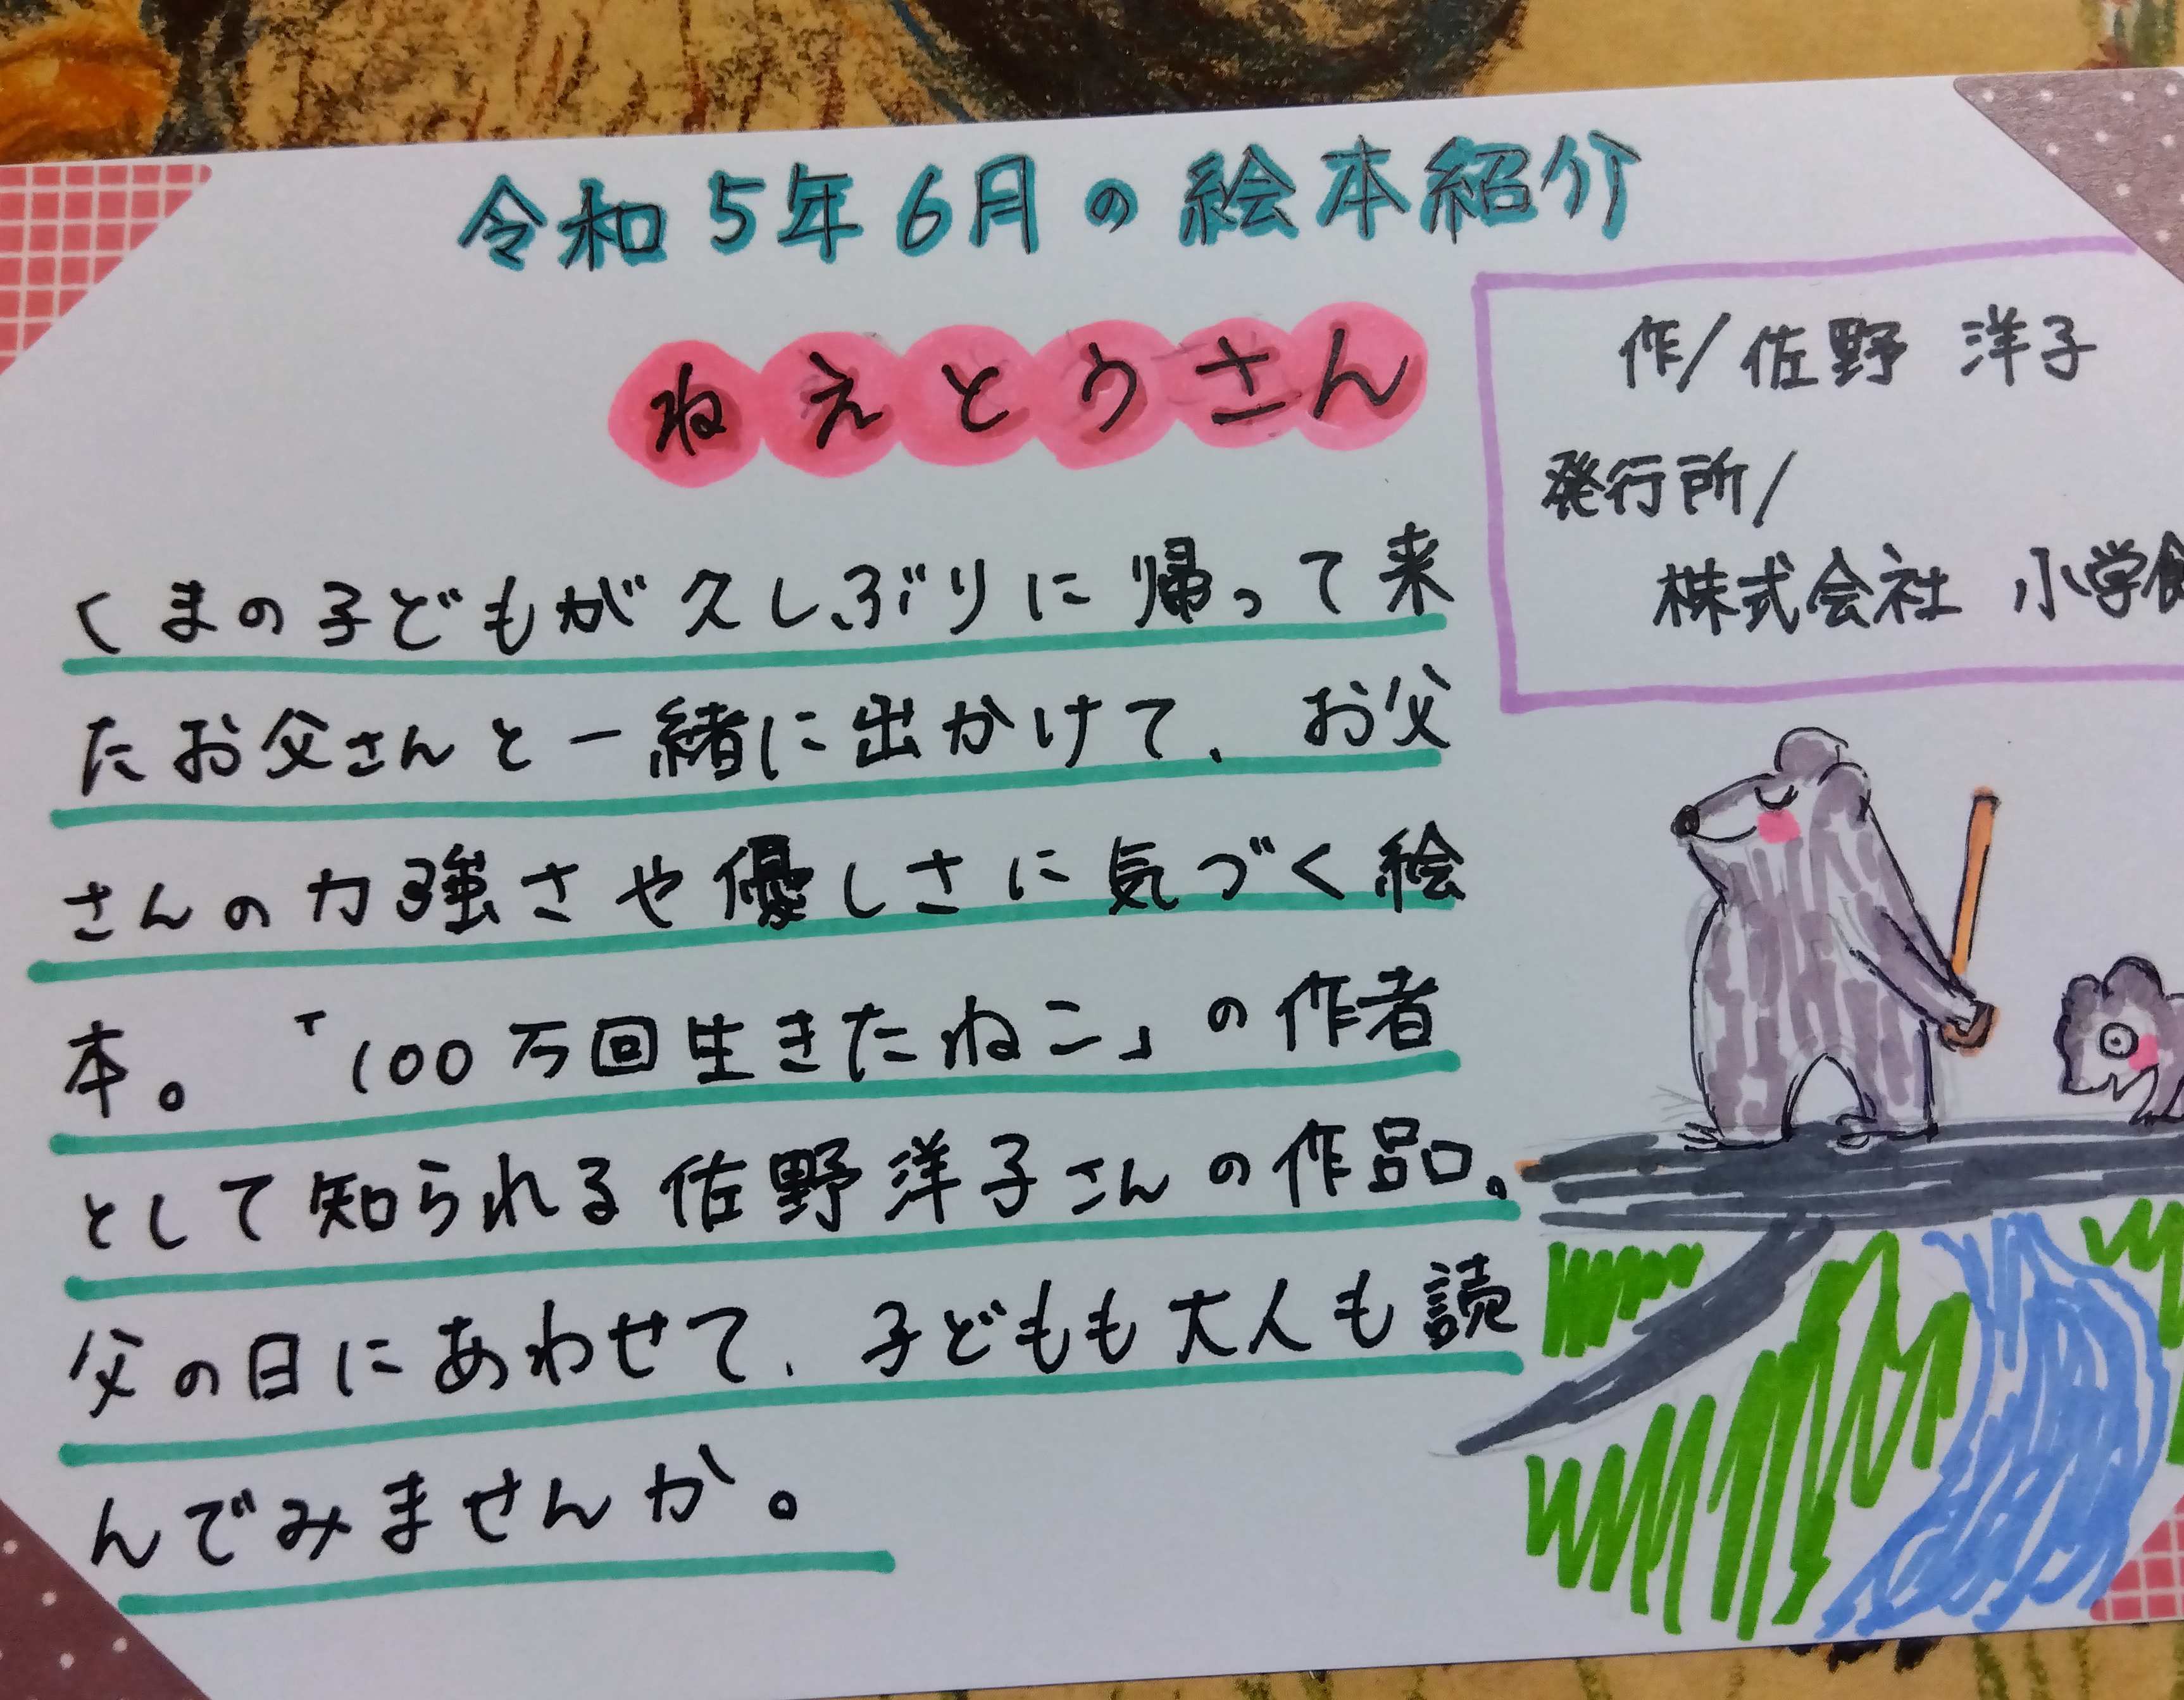 令和5年6月の絵本紹介
ねえとうさん
作/佐野 洋子
発行所/
株式会社 小学館
くまの子どもが久しぶりに帰って来
たお父さんと一緒に出かけて、お父
さんの力強さや優しさに気づく絵
本。「100万回生きたねこ」の作者
として知られる佐野洋子さんの作品。
父の日にあわせて、子どもも大人も読
んでみませんか。